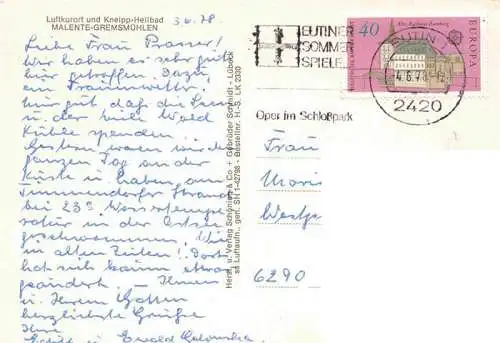 Luftkurort und Kneipp-Heilbad
MALENTE-GREMSMÜHLEN
3.6.78
Liebe Frau Prasser!
Wir haben es sehr gut
hier getroffen. Dazu
ein Traumwetter.
Nur gut daß die Seen
u. der viele Wald
Kühle spenden.
Gestern waren wir den
ganzen Tag an der
Küste u. haben am
Timmendorfer Strand
bei 23° Wassertempe-
ratur in der Ostsee
geschwommen. Wie
in alten Zeiten! Dort
hat sich kaum etwas
geändert. — Ihnen
u. Ihrem Gatten
herzlichste Grüße
Ihre
u. Ewald
Herst. u. Verlag Schöning & Co + Gebrüder Schmidt - Lübeck
Bestellnr. H.-S. LK 2330
EUTINER
SOMMER
SPIELE
Oper im Schloßpark
40
EUROPA
EUTIN 1
-4.6.78-12
2420
Frau
6290